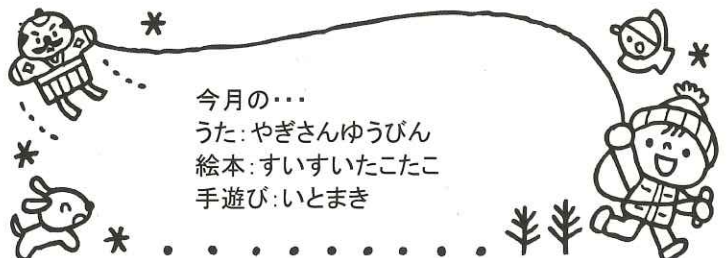 今月の・・・
うた：やぎさんゆうびん
絵本：すいすいたこたこ
手遊び：いとまき